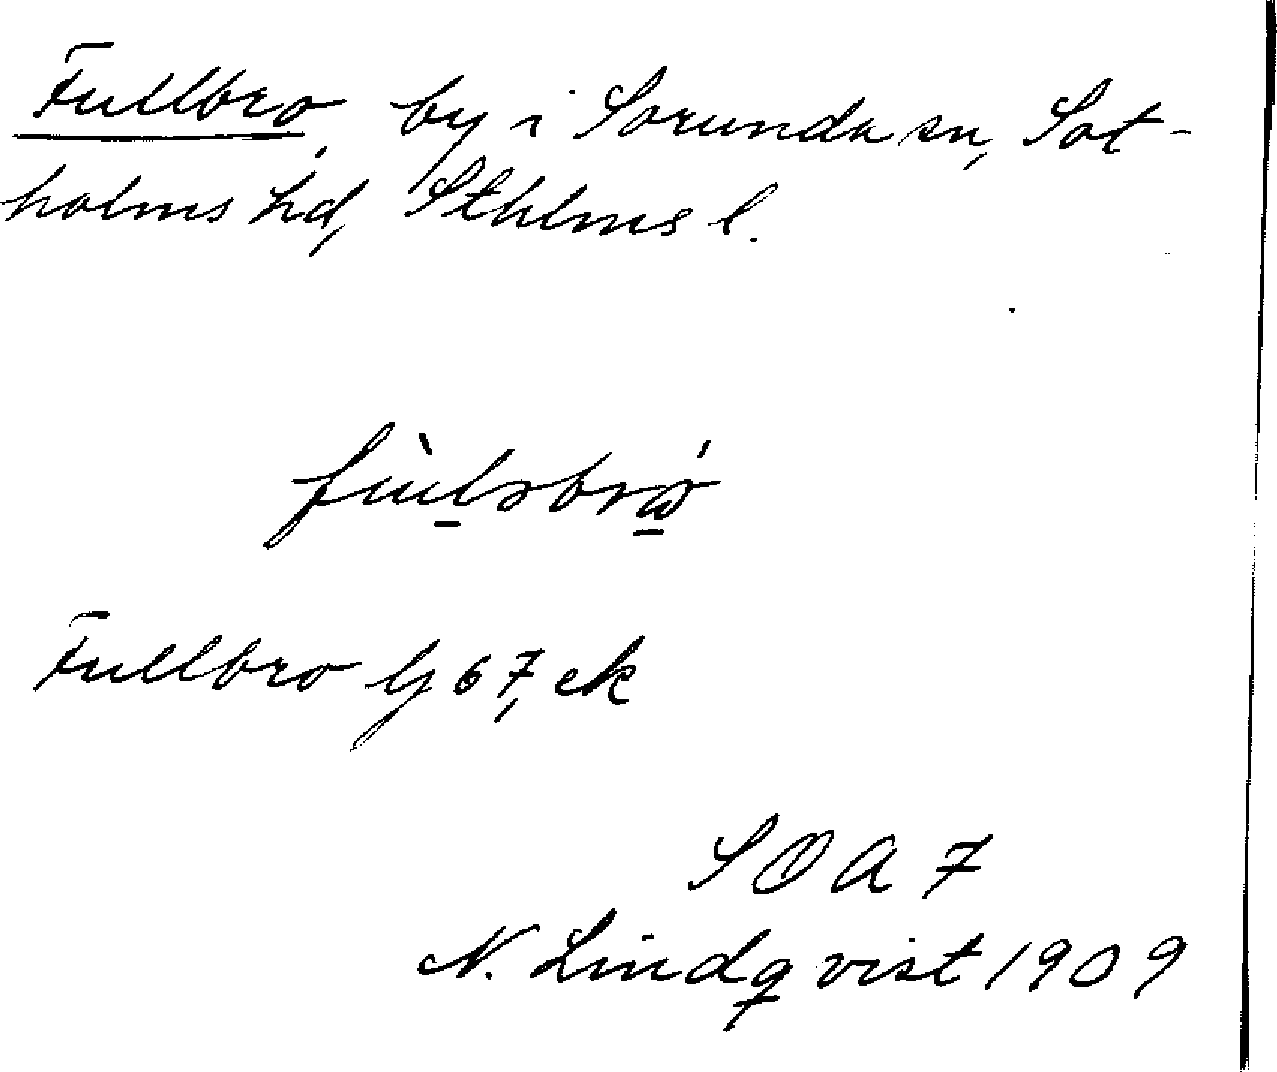 Fullbro, by i Sorunda sn, Sot-
holms hd, Sthlms l.
Fullbro Gj 67, ek
SOA 7
N. Lindqvist 1909